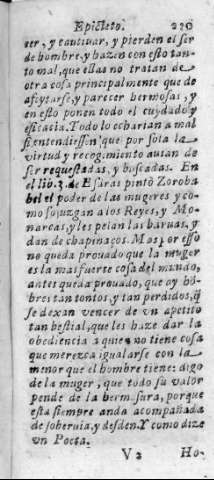 Epicteto. 220
rer, y cautiuar, y pierden el ser
de hombre, y hazen con esto tan-
to mal, que ellas no tratan de
otra cosa principalmente que de
afeytarse, y parecer hermosas, y
en esto ponen todo el cuydado y
eficacia. Todo lo echarian a mal
si entendiessen que por sola la
virtud y recogimiento auian de
ser requestadas, y buscadas. En
el lib. 3. de Esdras pintò Zoroba
bel el poder de las mugeres y co-
mo sojuzgan a los Reyes, y Mo-
narcas, y les pelan las barbas, y
dan de chapinaços. Mas por esso
no queda prouado que la muger
es la mas fuerte cosa del mundo,
antes queda prouado, que ay hõ-
bres tan tontos, y tan perdidos, q̃
se dexan vencer de vn apetito
tan bestial, que les haze dar la
obediencia a quien no tiene cosa
que merezca igualarse con la
menor que el hombre tiene: digo
de la muger, que todo su valor
pende de la hermosura, porque
esta siempre anda acompañada
de soberuia, y desden. Y como dize
vn Poeta.
V 2 Ho-